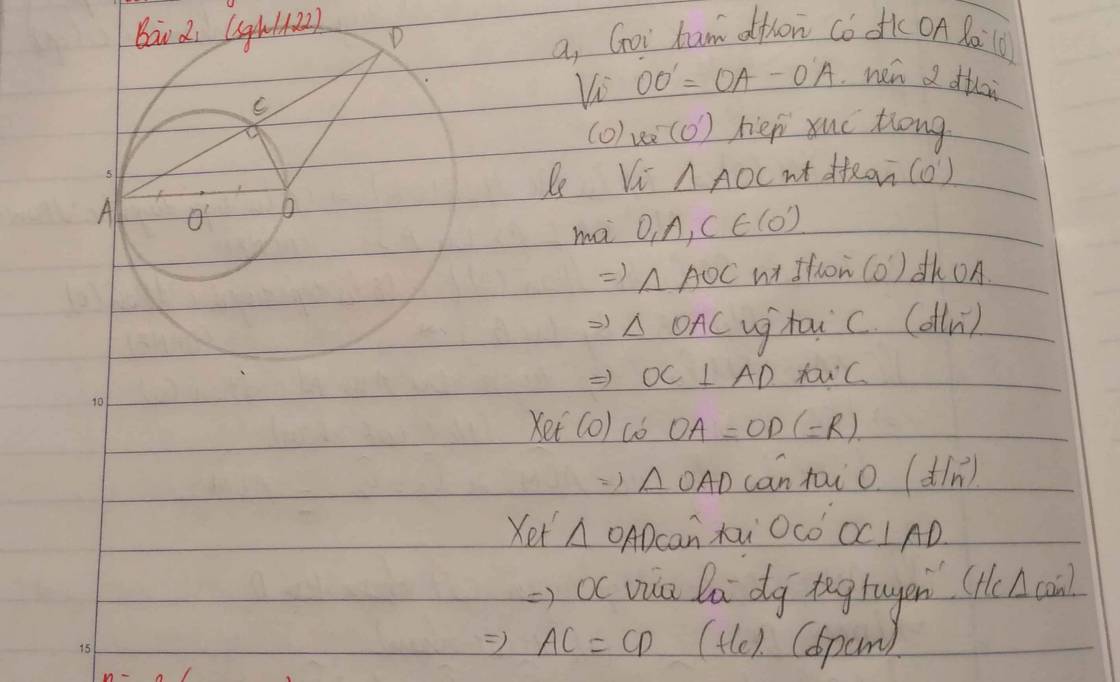 Bài 2, (sgk/122)
D
C
A
O'
O
5
10
15
a, Gọi tâm đtròn có đk OA là (O')
Vì OO' = OA - O'A. nên 2 đtròn
(O) và (O') tiếp xúc trong.
b, Vì Δ AOC nt đtròn (O')
mà O, A, C ∈ (O')
=> Δ AOC nt đtròn (O') đk OA.
=> Δ OAC vg tại C. (đlí)
=> OC ⊥ AD tại C
Xét (O) có OA = OD (=R)
=> Δ OAD cân tại O. (đ/n)
Xét Δ OAD cân tại O có OC ⊥ AD.
=> OC vừa là đg tr tuyến. (t/c Δ cân).
=> AC = CD (t/c). (đpcm)